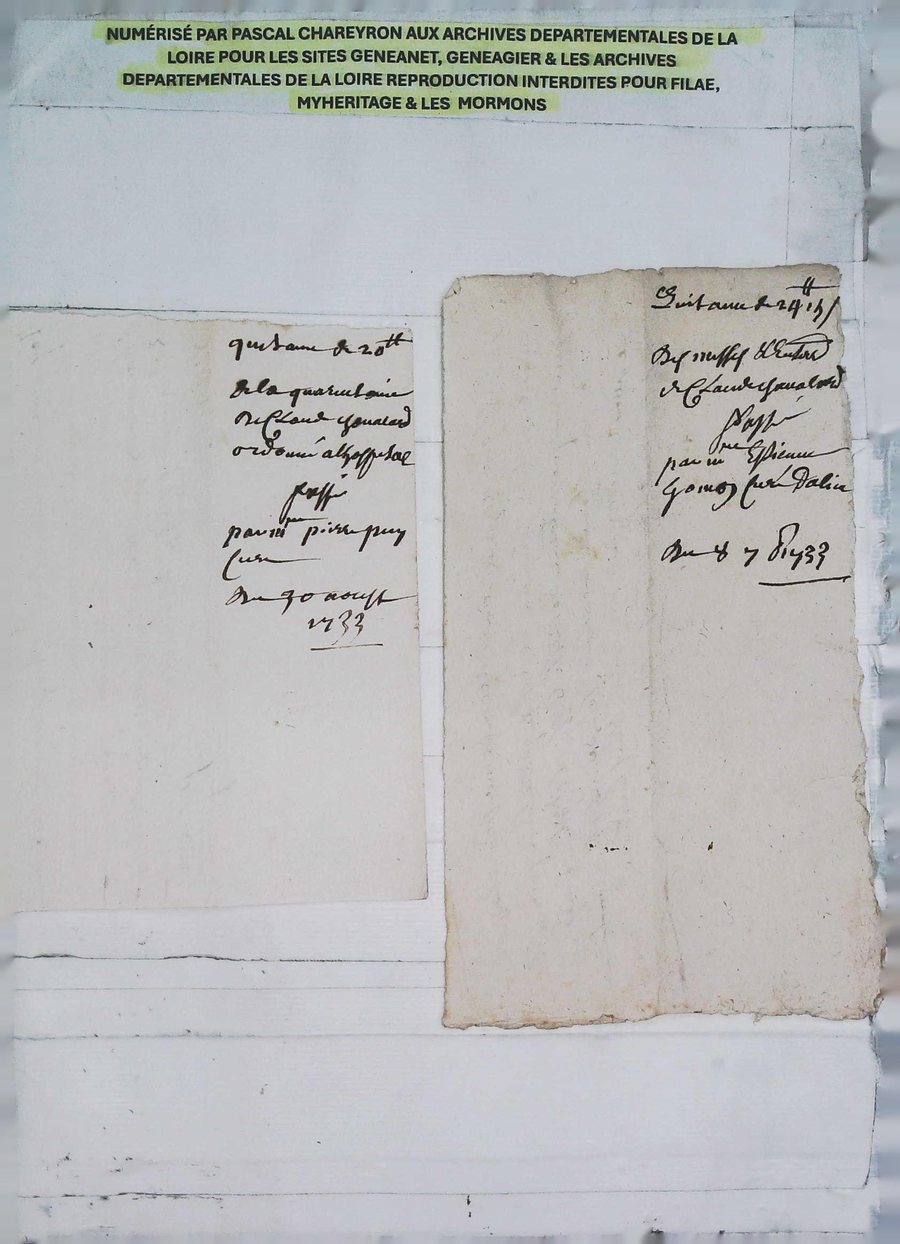 NUMÉRISÉ PAR PASCAL CHAREYRON AUX ARCHIVES DEPARTEMENTALES DE LA
LOIRE POUR LES SITES GENEANET, GENEAGIER & LES ARCHIVES
DEPARTEMENTALES DE LA LOIRE REPRODUCTION INTERDITES POUR FILAE,
MYHERITAGE & LES MORMONS
quittance de 20 ₶
de la quarentaine
de Claude
ordonné a lhospital
passé
par mre pierre puy
Curé
Du 30 aoust
1733
Quittance de 24 ₶
Des messes
de Claude
passé
par mre Estienne
Curé Dalieu
Du 8 7 1733